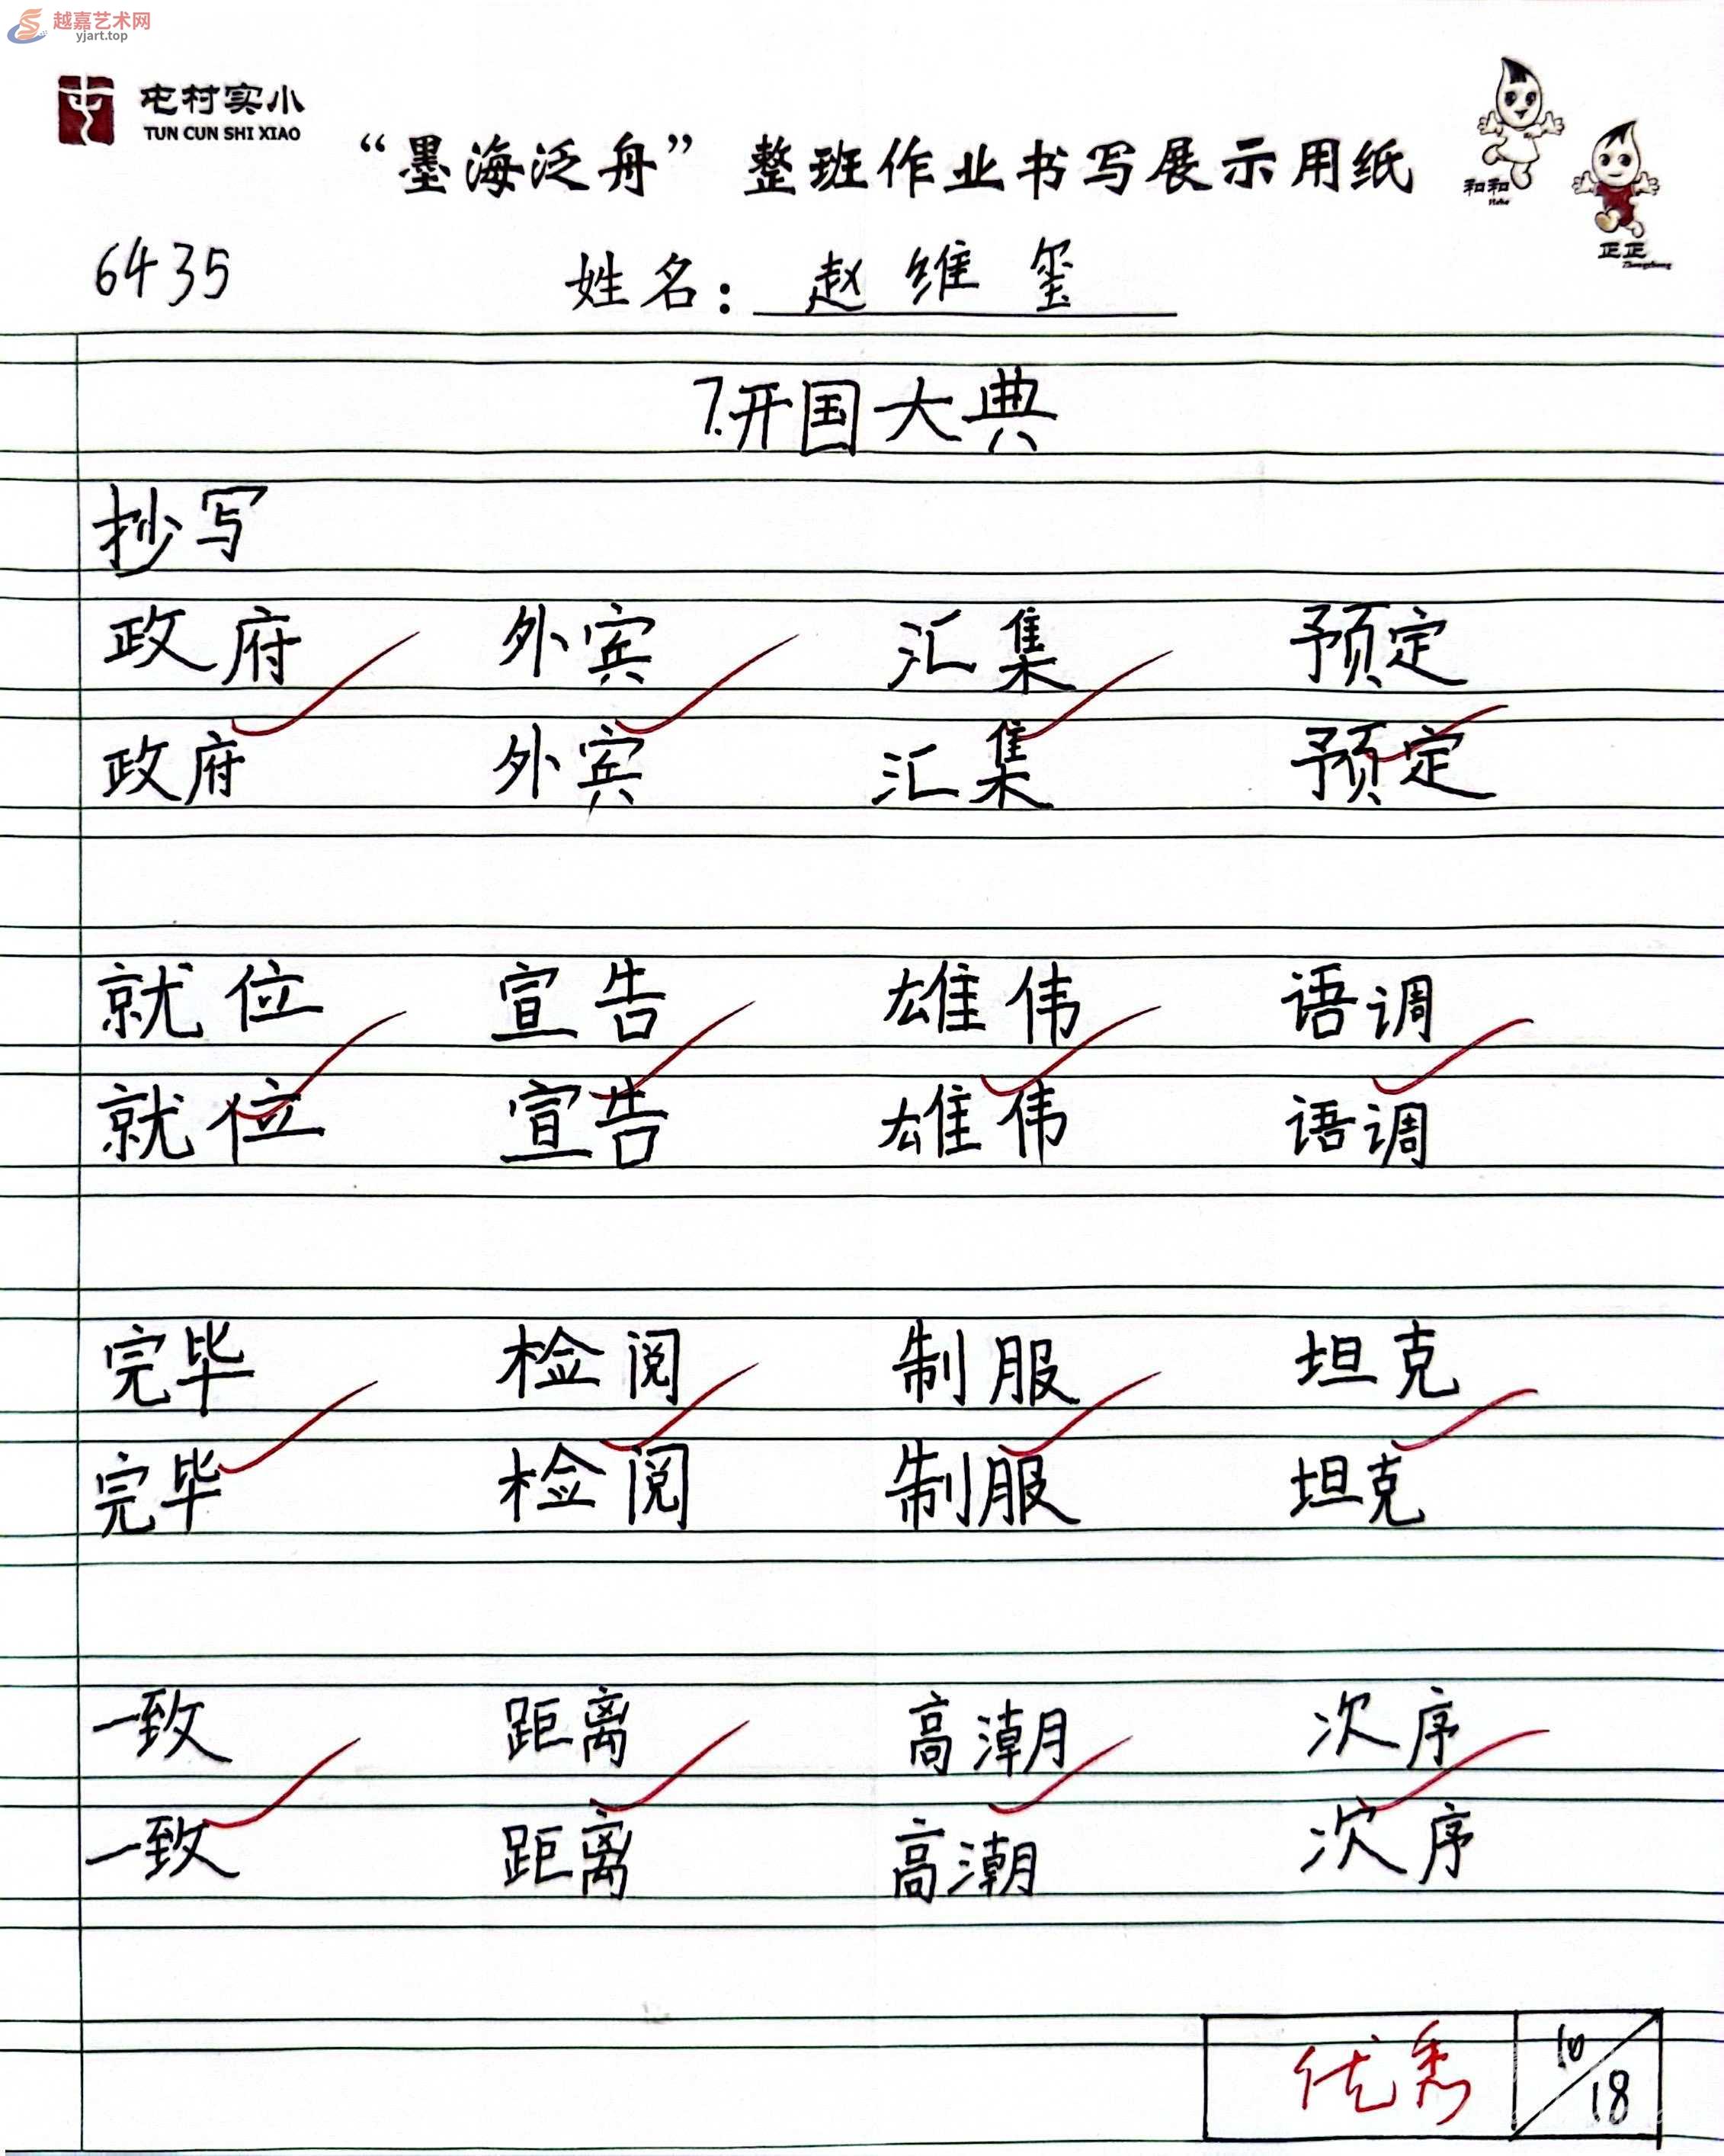 越嘉艺术网
yjart.top
屯村实小
TUN CUN SHI XIAO
“墨海泛舟” 整班作业书写展示用纸
和和
Hehe
正正
Zhengzheng
6435 姓名：赵维玺
7.开国大典
抄写
政府 外宾 汇集 预定
政府 外宾 汇集 预定
就位 宣告 雄伟 语调
就位 宣告 雄伟 语调
完毕 检阅 制服 坦克
完毕 检阅 制服 坦克
一致 距离 高潮 次序
一致 距离 高潮 次序
优秀 10/18